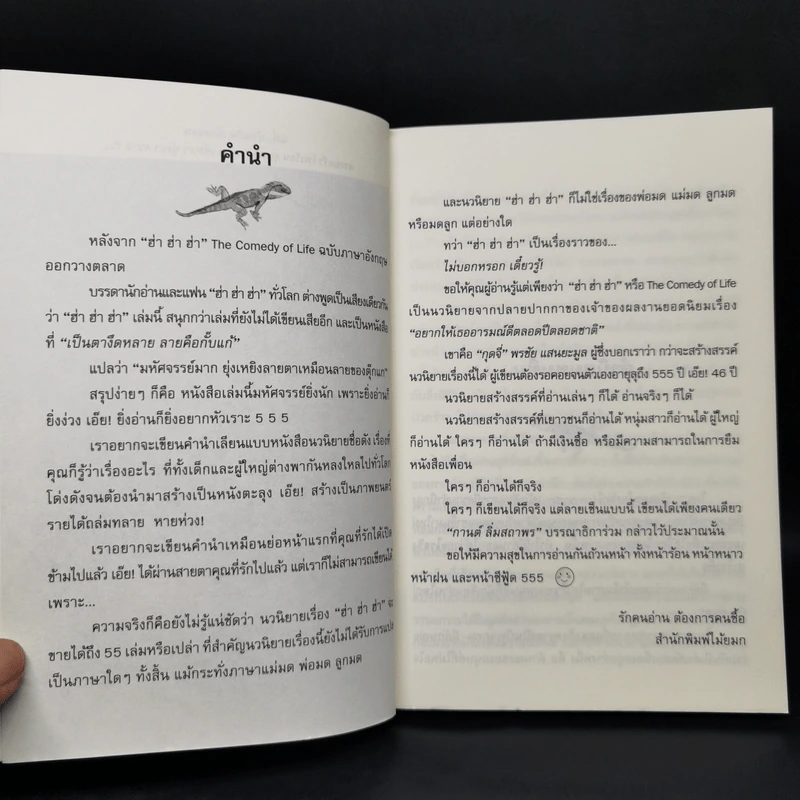 คำนำ
หลังจาก “ฮ่า ฮ่า ฮ่า” The Comedy of Life ฉบับภาษาอังกฤษ
ออกวางตลาด
บรรดานักอ่านและแฟน “ฮ่า ฮ่า ฮ่า” ทั่วโลก ต่างพูดเป็นเสียงเดียวกัน
ว่า “ฮ่า ฮ่า ฮ่า” เล่มนี้ สนุกกว่าเล่มที่ยังไม่ได้เขียนเสียอีก และเป็นหนังสือ
ที่ “เป็นตางึดหลาย ลายคือกั๊บแก้”
แปลว่า “มหัศจรรย์มาก ยุ่งเหยิงลายตาเหมือนลายของตุ๊กแก”
สรุปง่ายๆ ก็คือ หนังสือเล่มนี้มหัศจรรย์ยิ่งนัก เพราะยิ่งอ่านก็
ยิ่งง่วง เอ๊ย! ยิ่งอ่านก็ยิ่งอยากหัวเราะ 5 5 5
เราอยากจะเขียนคำนำเลียนแบบหนังสือนวนิยายชื่อดัง เรื่องที่
คุณก็รู้ว่าเรื่องอะไร ที่ทั้งเด็กและผู้ใหญ่ต่างพากันหลงใหลไปทั่วโลก
โด่งดังจนต้องนำมาสร้างเป็นหนังตะลุง เอ๊ย! สร้างเป็นภาพยนตร์
รายได้ถล่มทลาย หายห่วง!
เราอยากจะเขียนคำนำเหมือนย่อหน้าแรกที่คุณที่รักได้เปิด
ข้ามไปแล้ว เอ๊ย! ได้ผ่านสายตาคุณที่รักไปแล้ว แต่เราก็ไม่สามารถเขียนได้
เพราะ...
ความจริงก็คือยังไม่รู้แน่ชัดว่า นวนิยายเรื่อง “ฮ่า ฮ่า ฮ่า” จะ
ขายได้ถึง 55 เล่มหรือเปล่า ที่สำคัญนวนิยายเรื่องนี้ยังไม่ได้รับการแปล
เป็นภาษาใดๆ ทั้งสิ้น แม้กระทั่งภาษาแม่มด พ่อมด ลูกมด
และนวนิยาย “ฮ่า ฮ่า ฮ่า” ก็ไม่ใช่เรื่องของพ่อมด แม่มด ลูกมด
หรือมดลูก แต่อย่างใด
ทว่า “ฮ่า ฮ่า ฮ่า” เป็นเรื่องราวของ...
ไม่บอกหรอก เดี๋ยวรู้!
ขอให้คุณผู้อ่านรู้แต่เพียงว่า “ฮ่า ฮ่า ฮ่า” หรือ The Comedy of Life
เป็นนวนิยายจากปลายปากกาของเจ้าของผลงานยอดนิยมเรื่อง
“อยากให้เธออารมณ์ดีตลอดปีตลอดชาติ”
เขาคือ “กุดจี่” พรชัย แสนยะมูล ผู้ซึ่งบอกเราว่า กว่าจะสร้างสรรค์
นวนิยายเรื่องนี้ได้ ผู้เขียนต้องรอคอยจนตัวเองอายุลุถึง 555 ปี เอ๊ย! 46 ปี
นวนิยายสร้างสรรค์ที่อ่านเล่นๆ ก็ได้ อ่านจริงๆ ก็ได้
นวนิยายสร้างสรรค์ที่เยาวชนก็อ่านได้ หนุ่มสาวก็อ่านได้ ผู้ใหญ่
ก็อ่านได้ ใครๆ ก็อ่านได้ ถ้ามีเงินซื้อ หรือมีความสามารถในการยืม
หนังสือเพื่อน
ใครๆ ก็อ่านได้ก็จริง
ใครๆ ก็เขียนได้ก็จริง แต่ลายเซ็นแบบนี้ เขียนได้เพียงคนเดียว
“กานต์ ลิ่มสถาพร” บรรณาธิการร่วม กล่าวไว้ประมาณนั้น
ขอให้มีความสุขในการอ่านกันถ้วนหน้า ทั้งหน้าร้อน หน้าหนาว
หน้าฝน และหน้าซีฟู้ด 555
รักคนอ่าน ต้องการคนซื้อ
สำนักพิมพ์ไม้ยมก